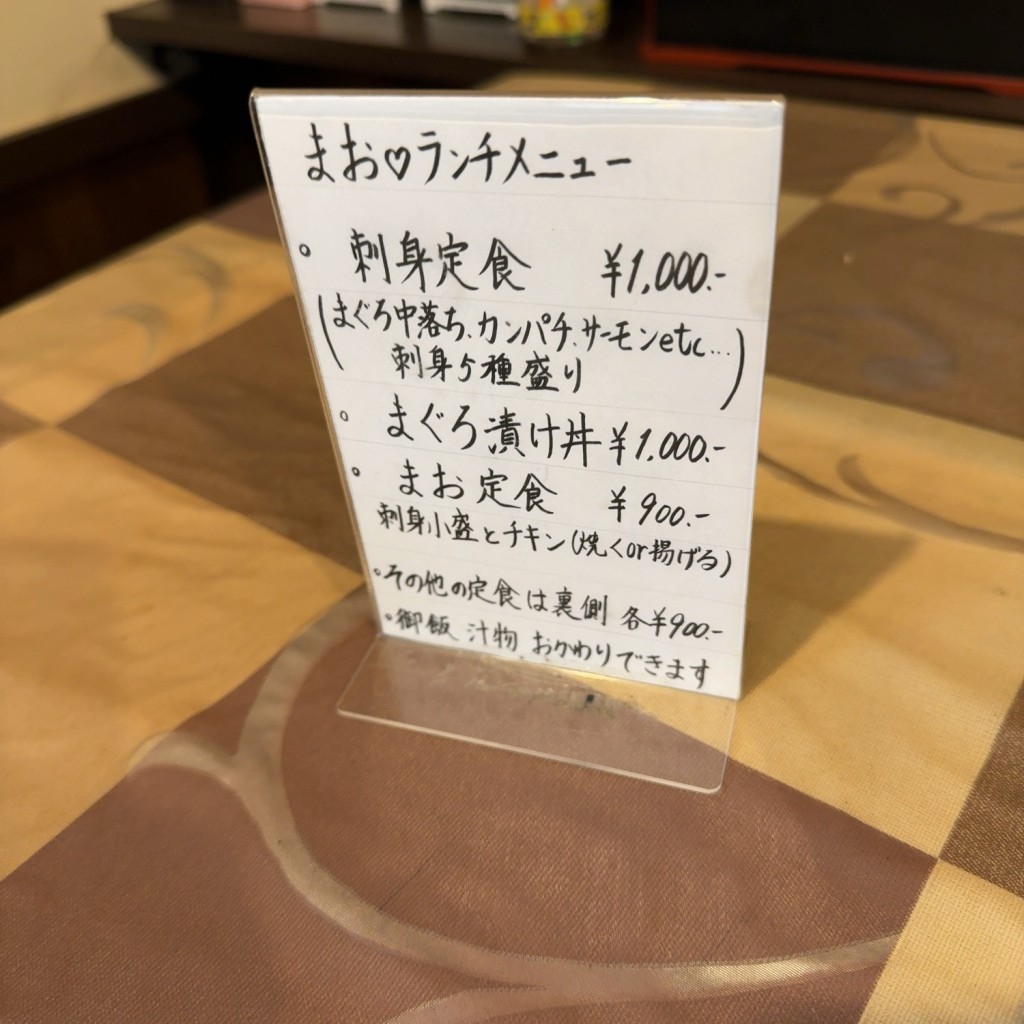 まお♡ランチメニュー
。刺身定食 ¥1,000.-
(まぐろ中落ち、カンパチ、サーモンetc...
刺身5種盛り)
。まぐろ漬け丼 ¥1,000.-
。まお定食 ¥900.-
刺身小盛とチキン(焼くor揚げる)
・その他の定食は裏側 各¥900.-
・御飯 汁物 おかわりできます